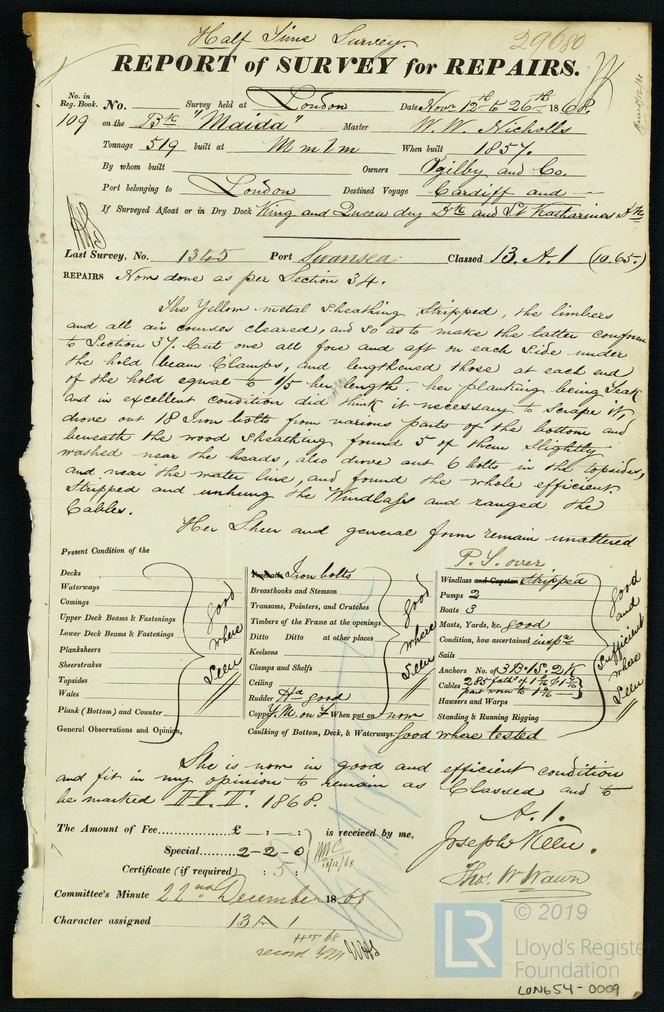 Half Time Survey.
29680
REPORT of SURVEY for REPAIRS.
No. in Reg. Book. No. Survey held at London Date Novr 12th to 26th 1868.
109 on the Bk "Maida" Master W. W. Nicholls
Tonnage 519 built at Mmlm When built 1857.
By whom built Owners Ogilby and Co.
Port belonging to London Destined Voyage Cardiff and —
If Surveyed Afloat or in Dry Dock King and Queen dry Dk and St Katharines Dk
Last Survey, No. 1345 Port Swansea. Classed 13. A.1 (10.65.)
REPAIRS Now done as per Section 34.
The Yellow metal sheathing stripped, the limbers
and all air courses cleared, and so as to make the latter conform
to Section 37. Cut one all fore and aft on each side under
the hold beam Clamps, and lengthened those at each end
of the hold equal to 1/5 her length. her planking being Teak
and in excellent condition did think it necessary to scrape it,
drove out 18 Iron bolts from various parts of the bottom and
beneath the wood sheathing found 5 of them slightly
washed near the heads, also drove out 6 bolts in the topsides,
and near the water line, and found the whole efficient.
Stripped and unhung the Windlass and ranged the
Cables.
Her Sheer and general form remain unaltered
P.S. over
Present Condition of the
Decks
Waterways
Comings
Upper Deck Beams & Fastenings
Lower Deck Beams & Fastenings
Planksheers
Sheerstrakes
Topsides
Wales
Plank (Bottom) and Counter
General Observations and Opinion,
Good where seen
Iron bolts
Breasthooks and Stemson
Transoms, Pointers, and Crutches
Timbers of the Frame at the openings
Ditto Ditto at other places
Keelsons
Clamps and Shelfs
Ceiling
Rudder good
Copper Y.M. on F When put on now
Caulking of Bottom, Deck, & Waterways Good where tested
Good where seen
Windlass and Capstan Stripped
Pumps 2
Boats 3
Masts, Yards, &c. good
Condition, how ascertained inspn
Sails
Anchors No. of 3 B. 1 S. 2 K
Cables 285 faths of
part worn to
Hawsers and Warps
Standing & Running Rigging
Good and sufficient where seen
She is now in good and efficient condition
and fit in my opinion to remain as Classed and to
be marked H.T. 1868.
A.1.
The Amount of Fee £ — : — : is received by me,
Special 2-2-0
Certificate (if required) : 5 :
18/12/68
Joseph Keen.
Thos. W Wawn
Committee's Minute 22nd December 1868
Character assigned 13 A 1
HT 68
record YM
© 2019
LR
Lloyd's Register
Foundation
LON654-0009